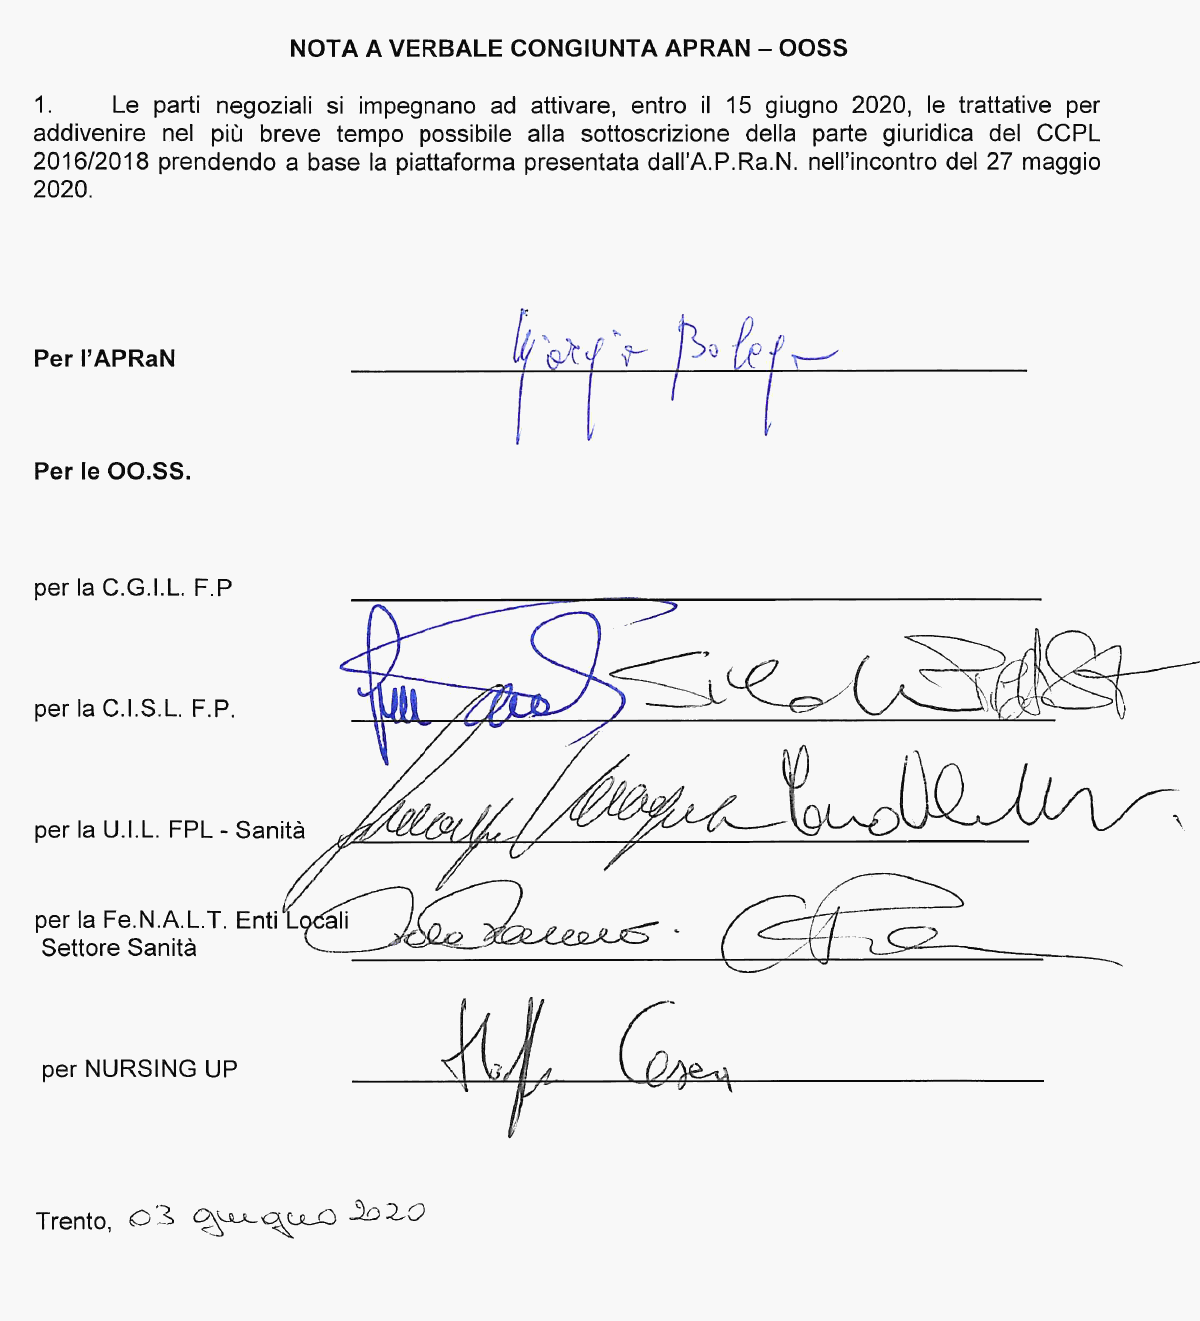 NOTA A VERBALE CONGIUNTA APRAN – OOSS
1. Le parti negoziali si impegnano ad attivare, entro il 15 giugno 2020, le trattative per
addivenire nel più breve tempo possibile alla sottoscrizione della parte giuridica del CCPL
2016/2018 prendendo a base la piattaforma presentata dall'A.P.Ra.N. nell'incontro del 27 maggio
2020.
Per l'APRaN Giorgio
Per le OO.SS.
per la C.G.I.L. F.P
per la C.I.S.L. F.P.
per la U.I.L. FPL - Sanità
per la Fe.N.A.L.T. Enti Locali
Settore Sanità
per NURSING UP
Trento, 03 giugno 2020